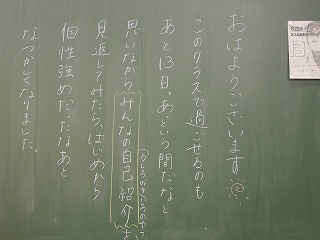 おはようございます
このクラスで過ごせるのも
あと13日。あという間だなと
思いながらみんなの自己紹介を
(うしろのきいろのやつ)
見返してみたら、はじめから
個性強めだったなあと
なつかしくなりました。